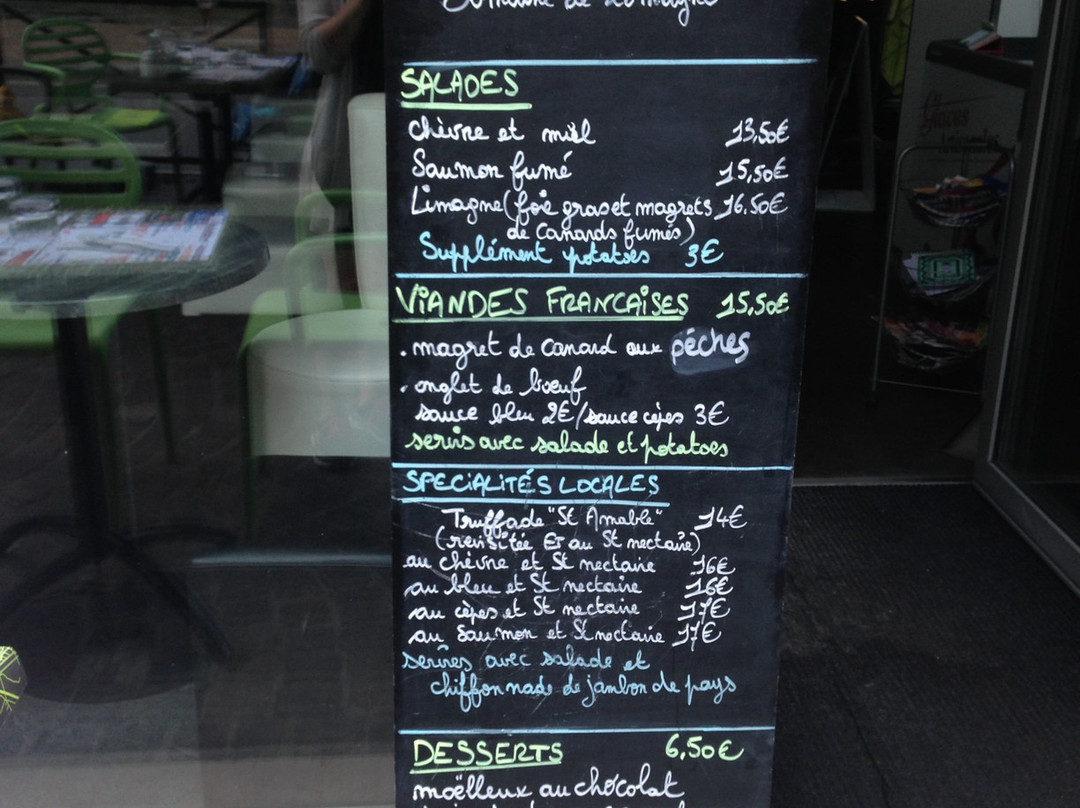 Domaine de Limagne
SALADES
chèvre et miel 13,50€
Saumon fumé 15,50€
Limagne (foie gras et magrets 16.50€
de canards fumés)
Supplément potatoes 3€
VIANDES FRANCAISES 15,50€
. magret de canard aux pêches
. onglet de bœuf
sauce bleu 2€/sauce cèpes 3€
servis avec salade et potatoes
SPECIALITÉS LOCALES
Truffade "St Amable" 14€
(revisitée Et au St nectaire)
au chèvre et St nectaire 16€
au bleu et St nectaire 16€
au cèpes et St nectaire 17€
au Saumon et St nectaire 17€
servies avec salade et
chiffonnade de jambon de pays
DESSERTS 6,50€
moëlleux au chocolat
Glaces